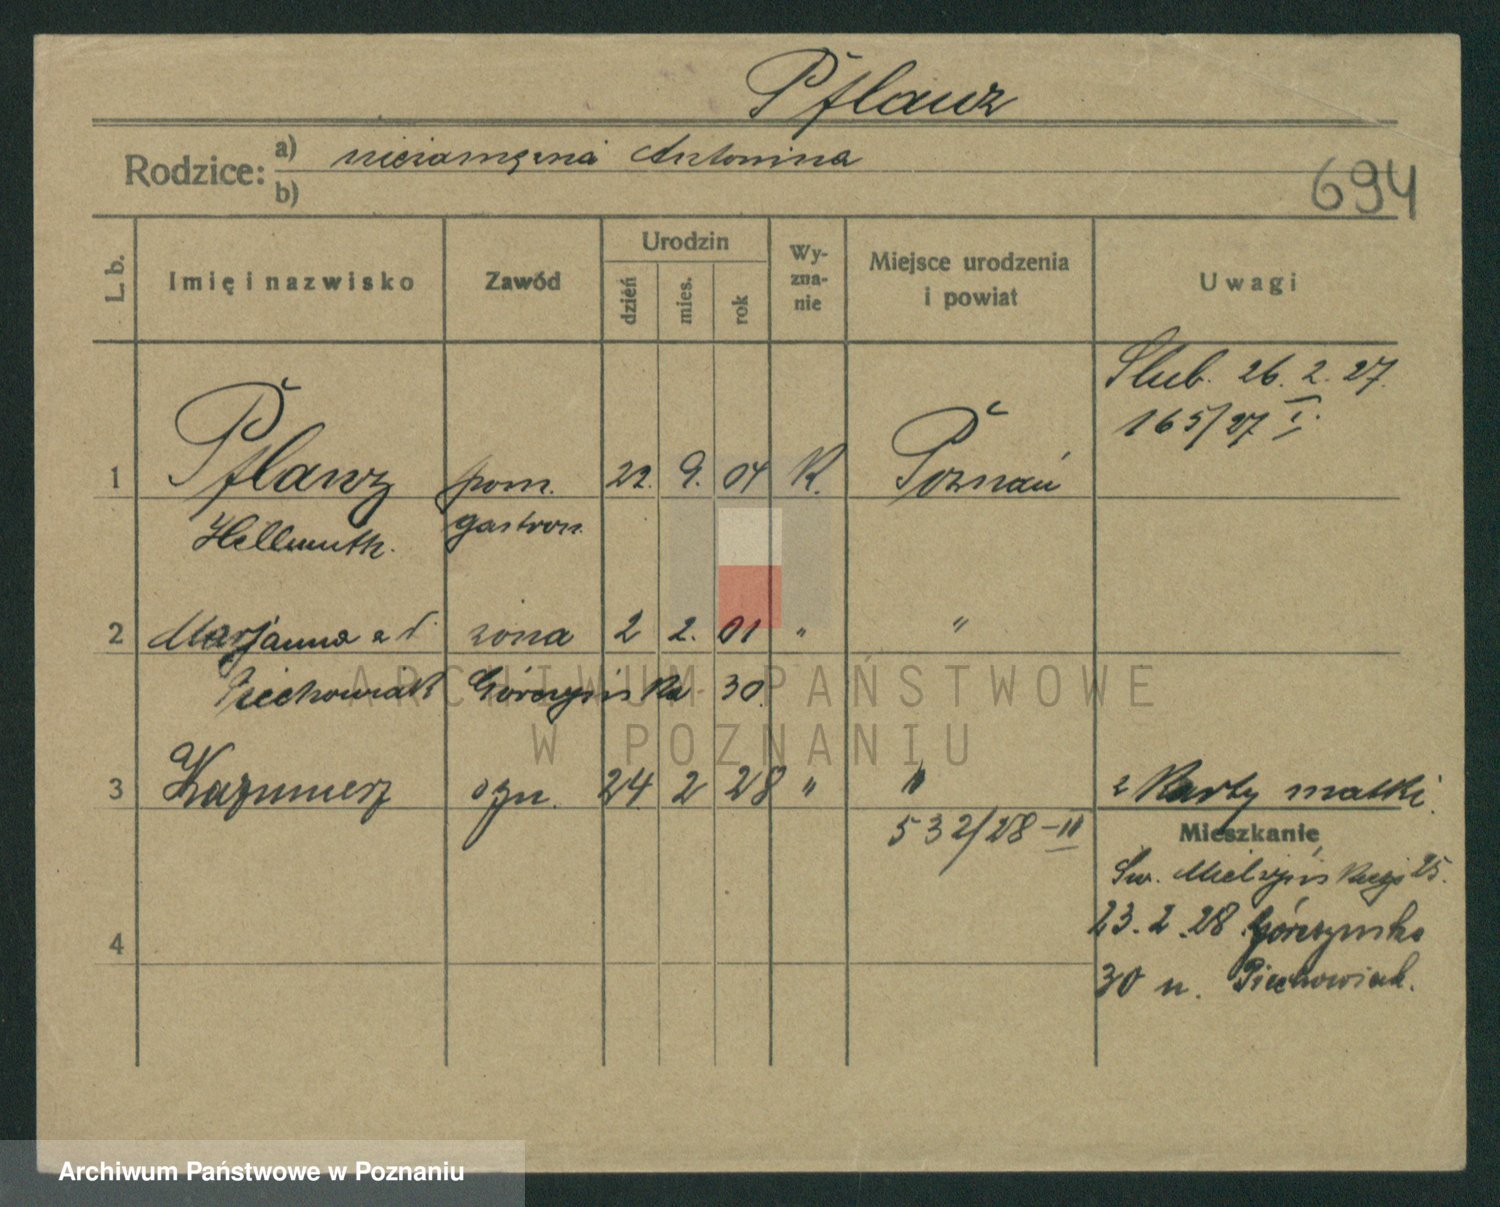 Pflanz
Rodzice: a) niezamężna Antonina
b)
694
L. b.
Imię i nazwisko
Zawód
Urodzin
dzień
mies.
rok
Wy-
zna-
nie
Miejsce urodzenia
i powiat
Uwagi
Slub. 26. 2. 27.
165/27 I.
1 Pflanz pom. 22. 9. 04 K. Poznań
Hellmuth. gastron.
2 Marjanna z d. żona 2 2. 01 " "
Piechowiak Górczyńska 30.
3 Kazimierz syn. 24 2 28 " " z Karty matki.
532/28-III
Mieszkanie
Sw. 25.
23. 2. 28. Górczyńska
4
30 u. Piechowiak.
ARCHIWUM PAŃSTWOWE
W POZNANIU
Archiwum Państwowe w Poznaniu